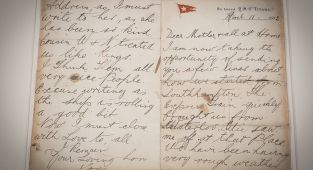 Address, as I must
write to her, as she
has been so kind
Cousin W & N treated
us like Kings.
I think they all
very nice People
Excuse writing as
the ship is rolling
a good bit
Now I must close
with Love to all
I Remain
Your Loving Son
On board R.M.S. "TITANIC"
April 11 1912
Dear Mother & all at Home
I am now taking the
opportunity of sending
you a few lines about
how we started from
Southampton The
Express Train quickly
brought us from
me if yet that Place
the have been having
very rough weather